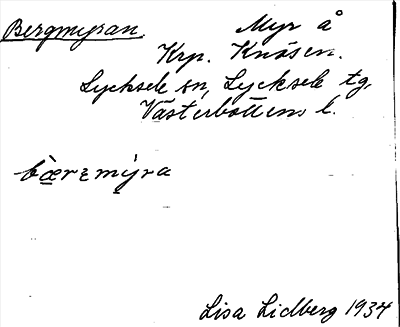 Bergmyran. Myr å
Krp. Knösen.
Lycksele sn, Lycksele tg,
Västerbottens l.
bærsmýra
Lisa Lidberg 1934